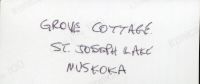 GROVE COTTAGE.
ST. JOSEPH LAKE
MUSKOKA